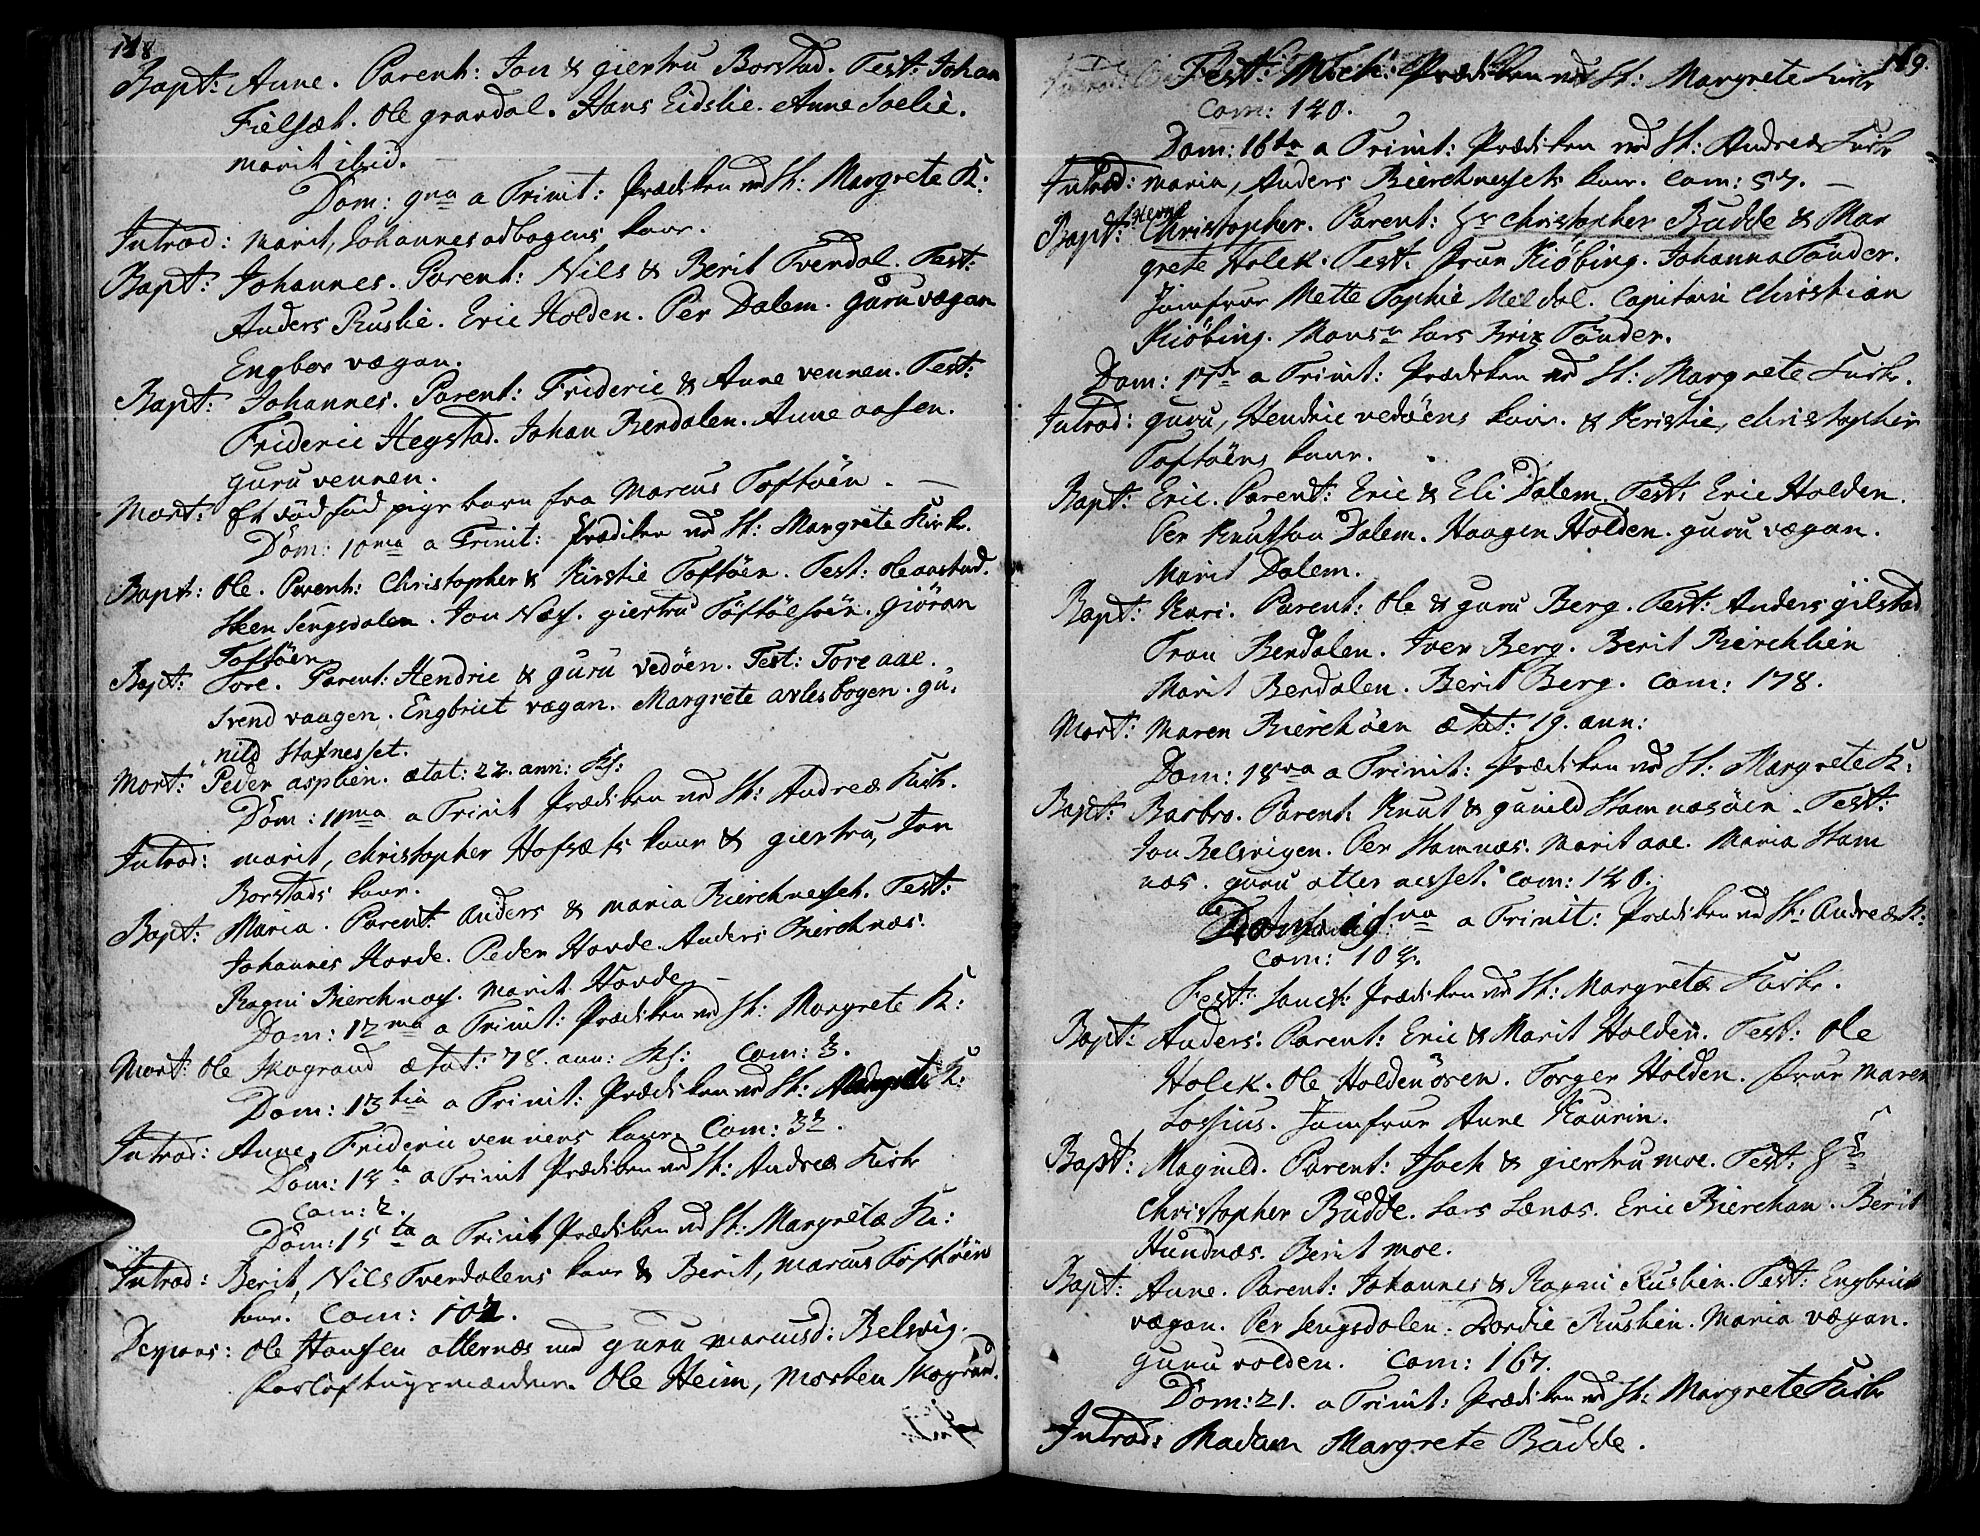 118
Bapt: Anne. Parent: Jon & giertru Borstad. Test: Johan
Fielsæt. Ole grandal. Hans Eidslie. Anne Soelie.
marit ibid.
Dom: 9na a Trinit: Prædiken ved St: Margrete K:
Introd: Marit, Johannes odbogens kone.
Bapt: Johannes. Parent: Nils & Berit Tverdal. Test:
Anders Ruslie. Eric Holden. Per Dalem. guru vægan
Engbor vægan.
Bapt: Johannes. Parent: Frideric & Anne vennen. Test:
Frideric Hegstad. Johan Berdalen. Anne aasen.
guru vennen.
Mort: Et død fød pige barn fra Marcus Toftøen. —
Dom: 10ma a Trinit: Prædiken ved St: Margrete Kirke.
Bapt: Ole. Parent: Christopher & Kirstie Toftøen. Test: Ole aastad.
Steen Sengsdalen. Jon Næss. giertru Toftøesøen. giøran
Toftøen.
Bapt: Tore. Parent: Hendric & guru vedøen. Test: Tore aae.
Svend vaagen. Engbriet vægan. Margrete avlesbogen. gu,
nild Stafnesset.
Mort: Peder asplien. ætat: 22. ann:
Dom: 11ma a Trinit Prædiken ved St: Andreæ Kirke.
Introd: marit, christopher Hofsæts kone & giertru, Jon
Borstads kone.
Bapt: Maria. Parent: Anders & maria Bierchnesset. Test:
Johannes Hovde. Peder Hovde. Anders Bierchnæs:
Ragni Bierchnæs. Marit Hovde. —
Dom: 12ma a Trinit: Prædiken ved St: Margrete K:
Mort: Ole Skogrand ætat: 78. ann: Com: 3.
Dom: 13tia a Trinit: Prædiken ved St: Margrete K:
Introd: Anne, Frideric vennens kone. Com: 32.
Dom: 14ta a Trinit Prædiken ved St: Andreæ Kirke
Com: 2.
Dom: 15ta a Trinit Prædiken ved St: Margretæ K:
Introd: Berit, Nils Tverdalens kone & Berit, marcus Toftøens
kone. Com: 102.
Despons: Ole Hansen otternæs med guru marcusd: Belsvig.
Forløftnings mændene. Ole Heim, Morten Skogrand.
119.
Fest: Mich: Prædiken ved St: Margrete Kirke
Com: 140.
Dom: 16ta a Trinit: Prædiken ved St: Andreæ Kirke
Introd: maria, Anders Bierchnessets kone. Com: 57. —
Bapt: Christopher. Parent: Hr Christopher Budde & Mar
grete Holck. Test: Frue Kiöbing. Johanna Tönder.
Jomfrue Mette Sophie Meldal. Capitain Christian
Kiöbing. Monsr Lars Brix Tönder.
Dom: 17de a Trinit: Prædiken ved St: Margrete Kirke.
Introd: guru, Hendric vedöens kone. & Kristie, christopher
Toftöens kone.
Bapt: Eric. Parent: Eric & Eli Dalem. Test: Eric Holden.
Per Knutson Dalem. Haagen Holden. guru vægan.
Marit Dalem.
Bapt: Kari. Parent: Ole & guru Berg. Test: Anders gilstad
Tron Berdalen. Iver Berg. Berit Bierchlien
Marit Berdalen. Berit Berg. Com: 178.
Mort: Maren Bierchöen ætat: 19. ann:
Dom: 18va a Trinit: Prædiken ved St: Margrete K:
Bapt: Barbro. Parent: Knut & gunild Hamnæsöen. Test:
Jon Belsvigen. Per Hamnæs. Marit aae. Maria Ham
næs. guru otternesset. Com: 140.
Dom: 19na a Trinit: Prædiken ved St: Andreæ K:
Com: 104.
Fest: Sanct: Prædiken ved St: Margretæ Kirke.
Bapt: Anders: Parent: Eric & Marit Holden. Test: Ole
Holck. Ole Holdenören. Torger Holden. Frue Maren
Lossius. Jomfrue Anne Kaurin.
Bapt: Magnild. Parent: Isach & giertru moe. Test: Hr
Christopher Budde. Lars Lænæs. Eric Bierchan. Berit
Hundnæs. Berit moe.
Bapt: Anne. Parent: Johannes & Ragni Ruslien. Test: Engbriet
vægan. Per Sengsdalen. Dordie Ruslien. Maria vægan.
guru volden. Com: 167.
Dom: 21. a Trinit: Prædiken ved St: Margrete Kirke
Introd: Madam Margrete Budde.